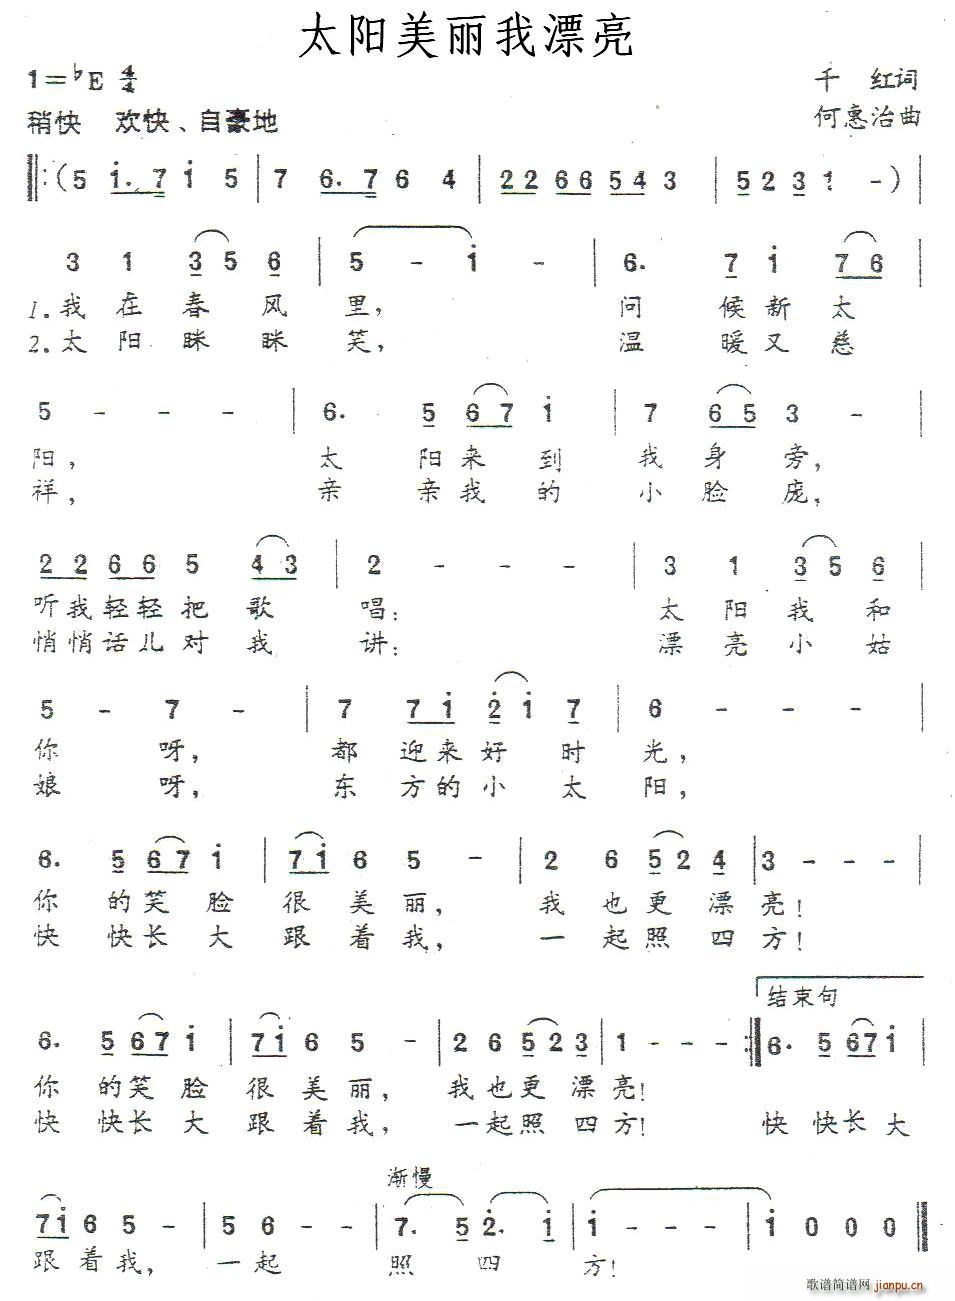 太阳美丽我漂亮
1=♭E 4/4
千 红词
稍快 欢快、自豪地
何惠治曲
‖:(5 i. 7 i 5 | 7 6. 7 6 4 | 2 2 6 6 5 4 3 | 5 2 3 1 -) |
3 1 3 5 6 | 5 - i - | 6. 7 i 7 6 |
1.我在春风里, 问候新太
2.太阳眯眯笑, 温暖又慈
5 - - - | 6. 5 6 7 i | 7 6 5 3 - |
阳, 太阳来到我身旁,
祥, 亲亲我的小脸庞,
2 2 6 6 5 4 3 | 2 - - - | 3 1 3 5 6
听我轻轻把歌唱: 太阳我和
悄悄话儿对我讲: 漂亮小姑
5 - 7 - | 7 7 i 2 i 7 | 6 - - - |
你呀, 都迎来好时光,
娘呀, 东方的小太阳,
6. 5 6 7 i | 7 i 6 5 - | 2 6 5 2 4 | 3 - - - |
你的笑脸很美丽, 我也更漂亮!
快快长大跟着我, 一起照四方!
结束句
6. 5 6 7 i | 7 i 6 5 - | 2 6 5 2 3 | 1 - - - :‖ 6. 5 6 7 i |
你的笑脸很美丽, 我也更漂亮!
快快长大跟着我, 一起照四方! 快快长大
渐慢
7 i 6 5 - | 5 6 - - | 7. 5 2. i | i - - - | i 0 0 0 ‖
跟着我, 一起照四方!
歌谱简谱网 jianpu.cn